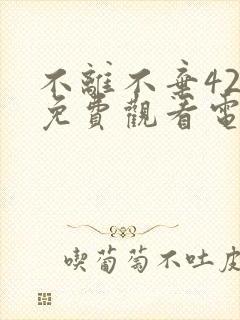 不離不棄42
免費觀看電
喫葡萄不吐皮